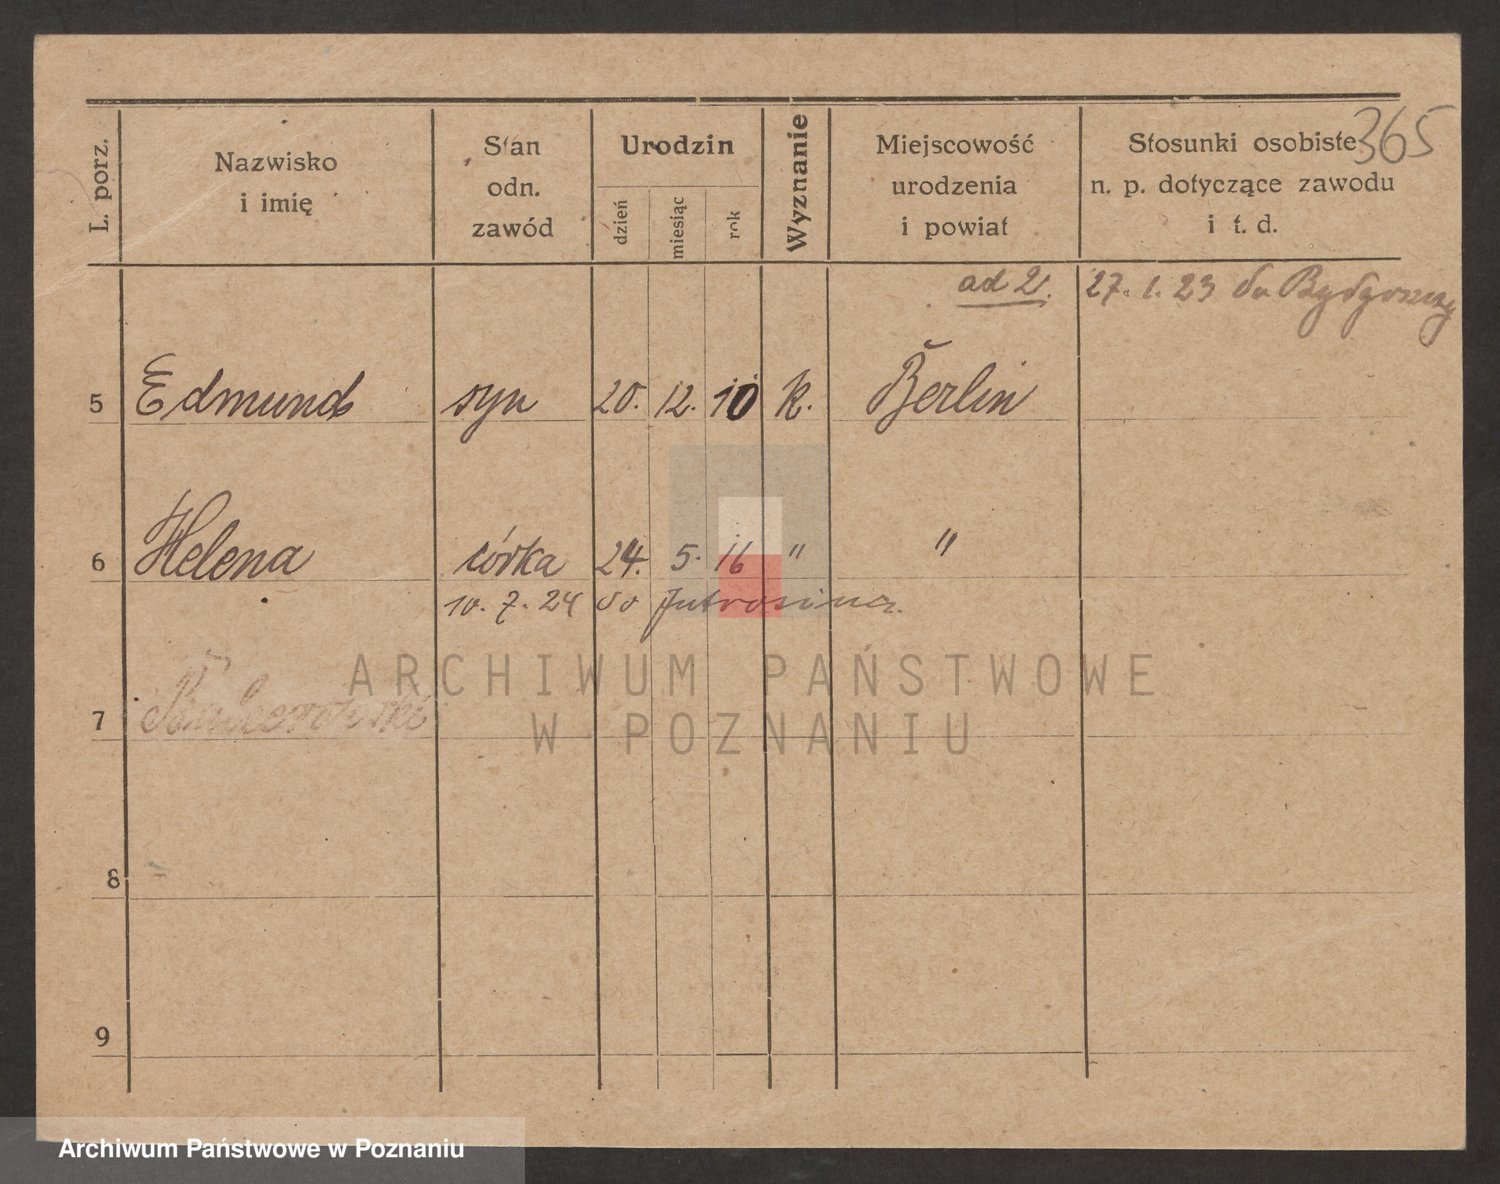 365
L. porz.
Nazwisko
i imię
Stan
odn.
zawód
Urodzin
dzień
miesiąc
rok
Wyznanie
Miejscowość
urodzenia
i powiat
Stosunki osobiste
n. p. dotyczące zawodu
i t. d.
ad 2. 27. 1. 23 do Bydgoszczy
5 Edmund syn 20. 12. 10 k. Berlin
6 Helena córka 24. 5. 16 " "
10. 7. 24 do Jutrosina.
7
8
9
ARCHIWUM PAŃSTWOWE
W POZNANIU
Archiwum Państwowe w Poznaniu